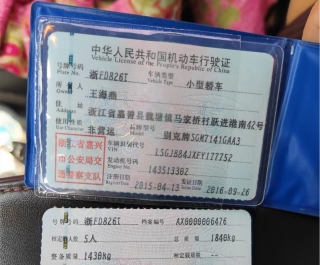 中华人民共和国机动车行驶证
Vehicle License of the People's Republic of China
号牌号码 浙FD826T 车辆类型 小型轿车
Plate No. Vehicle Type
所有人 王海燕
Owner
住址 浙江省嘉善县魏塘镇马家桥村跃进港南42号
Address
使用性质 非营运 品牌型号 别克牌SGM7141GAA3
Use Character Model
浙江省嘉兴 车辆识别代号
VIN LSGJB84JXFY117752
市公安局交 发动机号码 143513302
Engine No.
通警察支队 注册日期 2015-04-13 发证日期 2016-09-26
Register Date Issue Date
号牌号码 浙FD826T 档案编号 AX0000006476
核定载人数 5人 总质量 1840kg
整备质量 1430kg 核定载质量